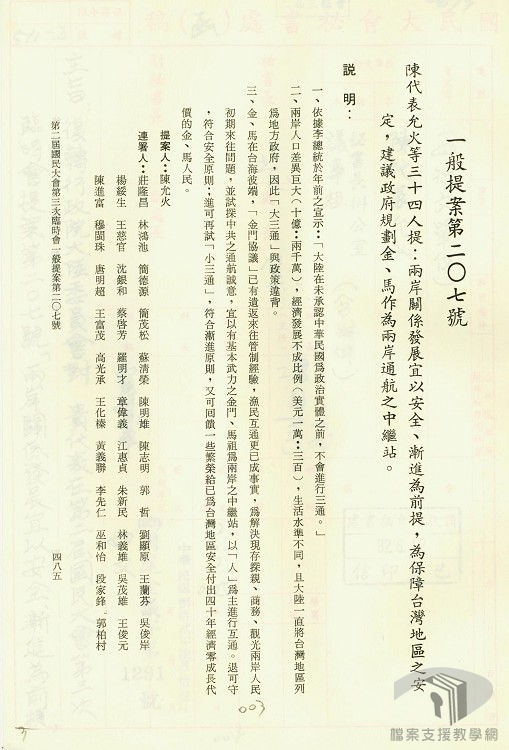 一般提案第二〇七號
陳代表允火等三十四人提：兩岸關係發展宜以安全、漸進為前提，為保障台灣地區之安
定，建議政府規劃金、馬作為兩岸通航之中繼站。
說　明：
一、依據李總統於年前之宣示：「大陸在未承認中華民國為政治實體之前，不會進行三通。」
二、兩岸人口差異巨大（十億：兩千萬），經濟發展不成比例（美元一萬：三百），生活水準不同，且大陸一直將台灣地區列
為地方政府，因此「大三通」與政策違背。
三、金、馬在台海彼端，「金門協議」已有遣返來往管制經驗，漁民互通更已成事實，為解決現存探親、商務、觀光兩岸人民
初期來往問題，並試探中共之通航誠意，宜以有基本武力之金門、馬祖為兩岸之中繼站，以「人」為主進行互通。退可守
，符合安全原則；進可再試「小三通」，符合漸進原則，又可回饋一些繁榮給已為台灣地區安全付出四十年經濟零成長代
價的金、馬人民。
提案人：陳允火
連署人：莊隆昌　林鴻池　簡德源　簡茂松　蘇清榮　陳明雄　陳志明　郭　哲　劉顯原　王蘭芬　吳俊岸
楊綏生　王慈官　沈銀和　蔡啓芳　羅明才　章偉義　江惠貞　朱新民　林義雄　吳茂雄　王俊元
陳進富　穆閩珠　唐明超　王富茂　高光承　王化榛　黃義聯　李先仁　巫和怡　段家鋒　郭柏村
第二屆國民大會第三次臨時會一般提案第二〇七號
四八五
003
3
1291
檔案支援教學網